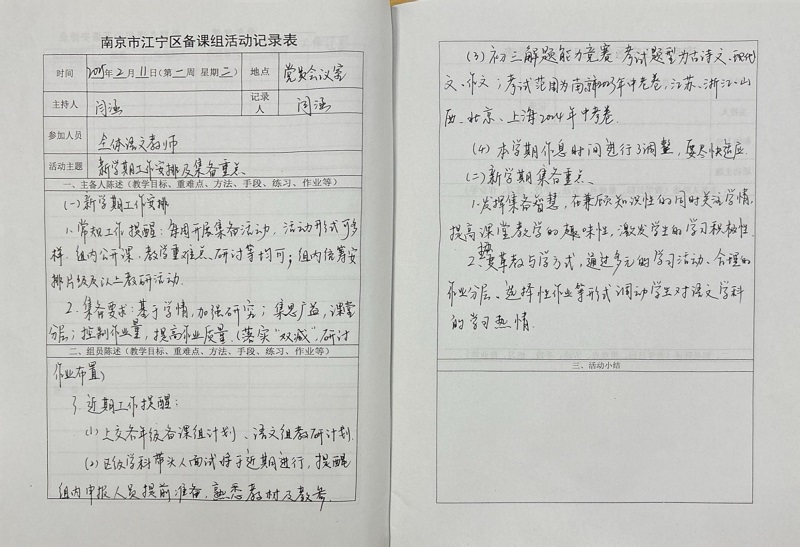 南京市江宁区备课组活动记录表
时间 2025年2月11日(第一周 星期二) 地点 党员会议室
主持人 闫涵 记录人 闫涵
参加人员 全体语文教师
活动主题 新学期工作安排及集备重点
一、主备人陈述(教学目标、重难点、方法、手段、练习、作业等)
(一)新学期工作安排
1.常规工作提醒:每周开展集备活动,活动形式可多
样,组内公开课、教学重难点、研讨等均可;组内统筹安
排片级及以上教研活动.
2.集备要求:基于学情,加强研究;集思广益,课堂
分层;控制作业量,提高作业质量.(落实“双减”,研讨
二、组员陈述(教学目标、重难点、方法、手段、练习、作业等)
作业布置)
3.近期工作提醒:
(1)上交各年级备课组计划、语文组教研计划.
(2)区级学科带头人面试将于近期进行,提醒
组内申报人员提前准备,熟悉教材及教参
(3)初三解题能力竞赛:考试题型为古诗文、现代
文、作文;考试范围为南京2023年中考卷,江苏、浙江、山
西、北京、上海2024年中考卷.
(4)本学期作息时间进行了调整,要尽快适应.
(二)新学期集备重点.
1.发挥集备智慧,在兼顾知识性的同时关注学情,
提高课堂教学的趣味性,激发学生的学习积极性.
2.要革教与学方式,通过多元的学习活动、合理的
作业分层、选择性作业等形式调动学生对语文学科
的学习热情.
三、活动小结